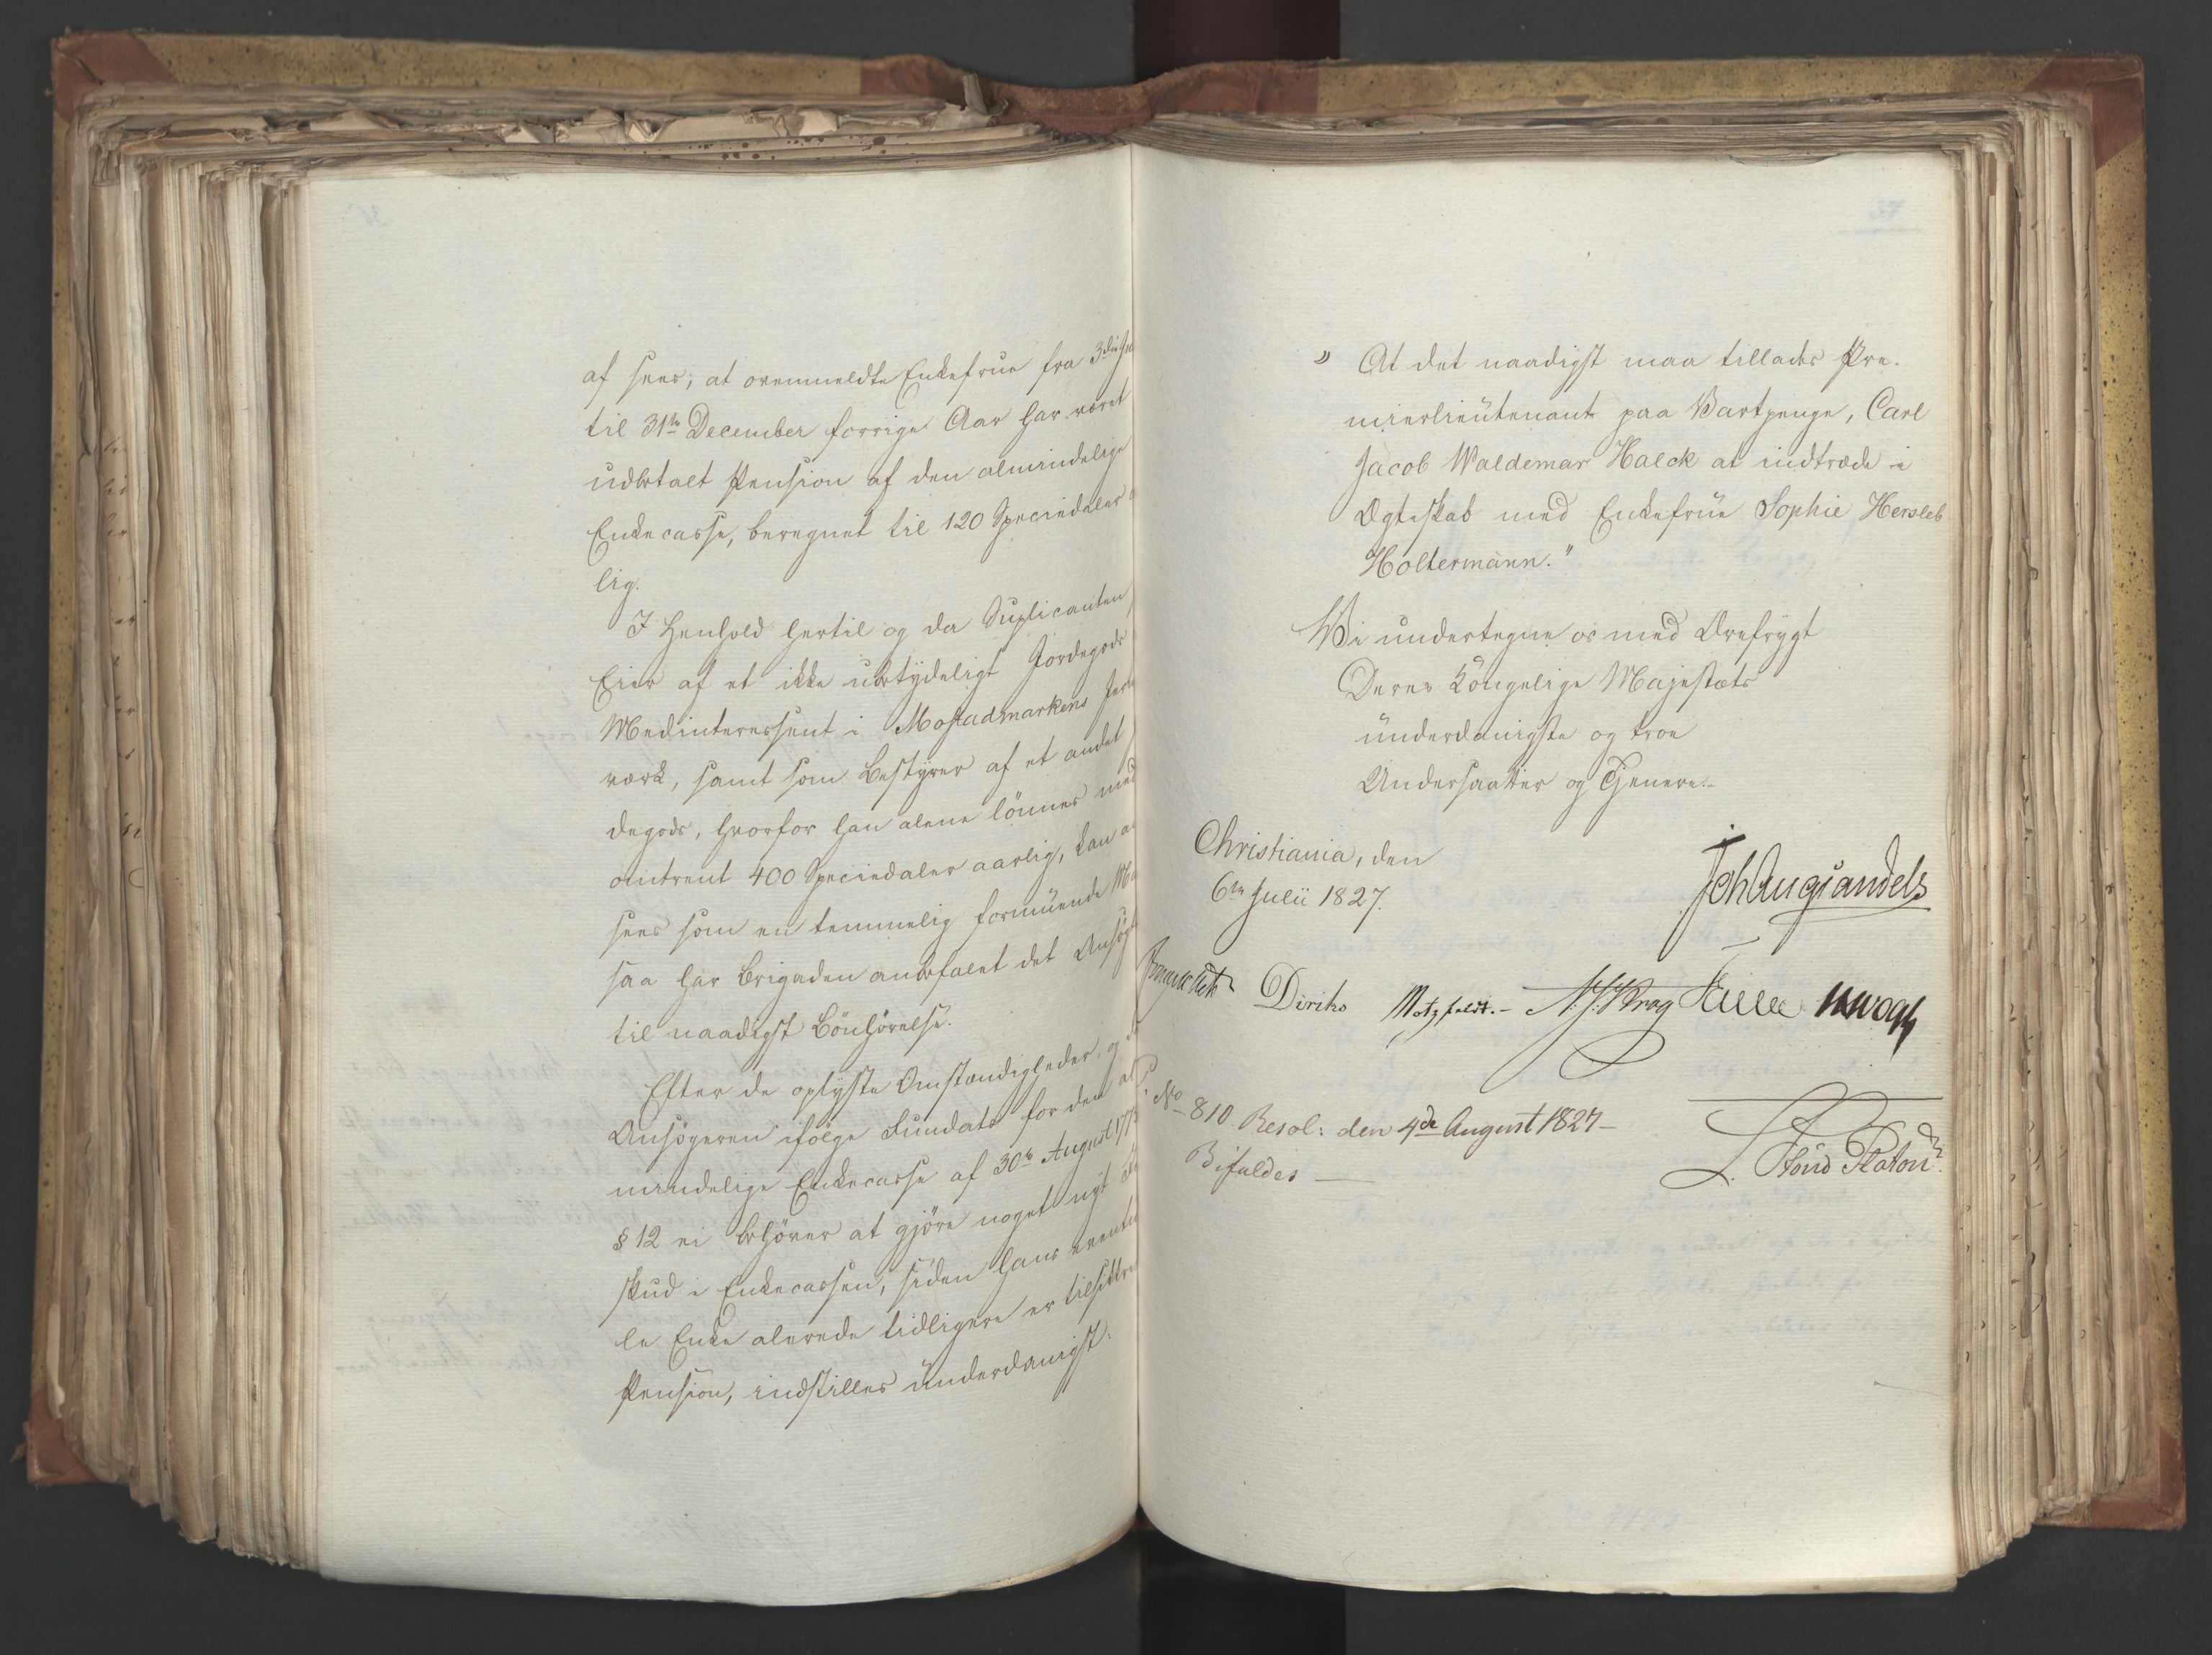 af sees, at ovenmeldte Enkefrue fra 3die
til 31te December forrige Aar har været
udbetalt Pension af den almindelige
Enkecasse, beregnet til 120 Speciedaler
lig.
I Henhold hertil og da Suplicanten
Eier af et ikke ubetydeligt Jordegods
Medinteressent i Mostadmarkens Jern
værk, samt som Bestyrer af et andet
degods, hvorfor han alene lönnes med
omtrent 400 Speciedaler aarlig, kan
sees som en temmelig formuende
saa har Brigaden anbefalet det
til naadigst Bönhörelse.
Efter de oplyste Omstændigheder, og
Ansögeren ifölge Fundats for den al
mindelige Enkecasse af 30te August
§ 12 ei behöver at gjöre noget nyt
skud i Enkecassen, siden hans eventue
le Enke allerede tidligere er tilsikkret
Pension, indstilles underdanigst:
37
" At det naadigst maa tillades Pre-
mierlieutenant paa Vartpenge, Carl
Jacob Waldemar Halck at indtræde i
Ægteskab med Enkefrue Sophie Hersleb
Holtermann."
Vi undertegne os med Ærefrygt
Deres Kongelige Majestæts
underdanigste og troe
Undersaatter og Tjenere.
Christiania, den
6te Julii 1827.
Joh Aug Sandels
Diriks Motzfeldt.- N. J. Krog
No 810. Resol: den 4de August 1827 -
Bifaldes -
L. Stoud Platou